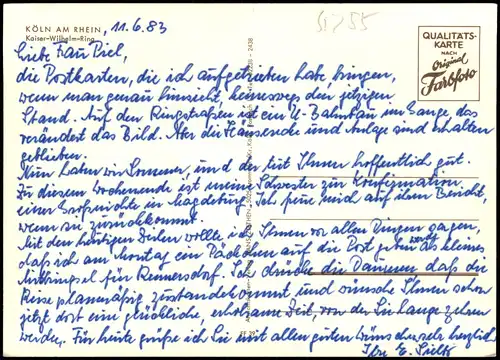 KÖLN AM RHEIN, 11.6.83
Kaiser-Wilhelm-Ring
QUALITÄTS-
KARTE
NACH
Original
Farbfoto
Liebe Frau Piel,
die Postkarten, die ich aufgetrieben habe bringen,
wenn man genau hinsieht, keineswegs den jetzigen
Stand. Auf den Ringstraßen ist ein U-Bahnbau im Gange das
verändert das Bild. Aber die Häuserecke und Anlage sind erhalten
geblieben.
Nun haben wir Sommer, und der tut Ihnen hoffentlich gut.
Zu diesem Wochenende ist meine Schwester zur Konfirmation
einer Großnichte in Magdeburg. Ich freue mich auf ihren Bericht,
wenn sie zurückkommt.
Mit den heutigen Zeilen wollte ich Ihnen vor allen Dingen sagen,
daß ich am Montag ein Päckchen auf die Post geben werde als kleines
Mitbringsel für Rennersdorf. Ich drücke die Daumen, daß die
Reise planmäßig zustandekommt, und wünsche Ihnen schon
jetzt dort eine glückliche, erholsame Zeit, von der Sie lange zehren
werden. Für heute grüße ich Sie mit allen guten Wünschen sehr herzlich
Ihre E.